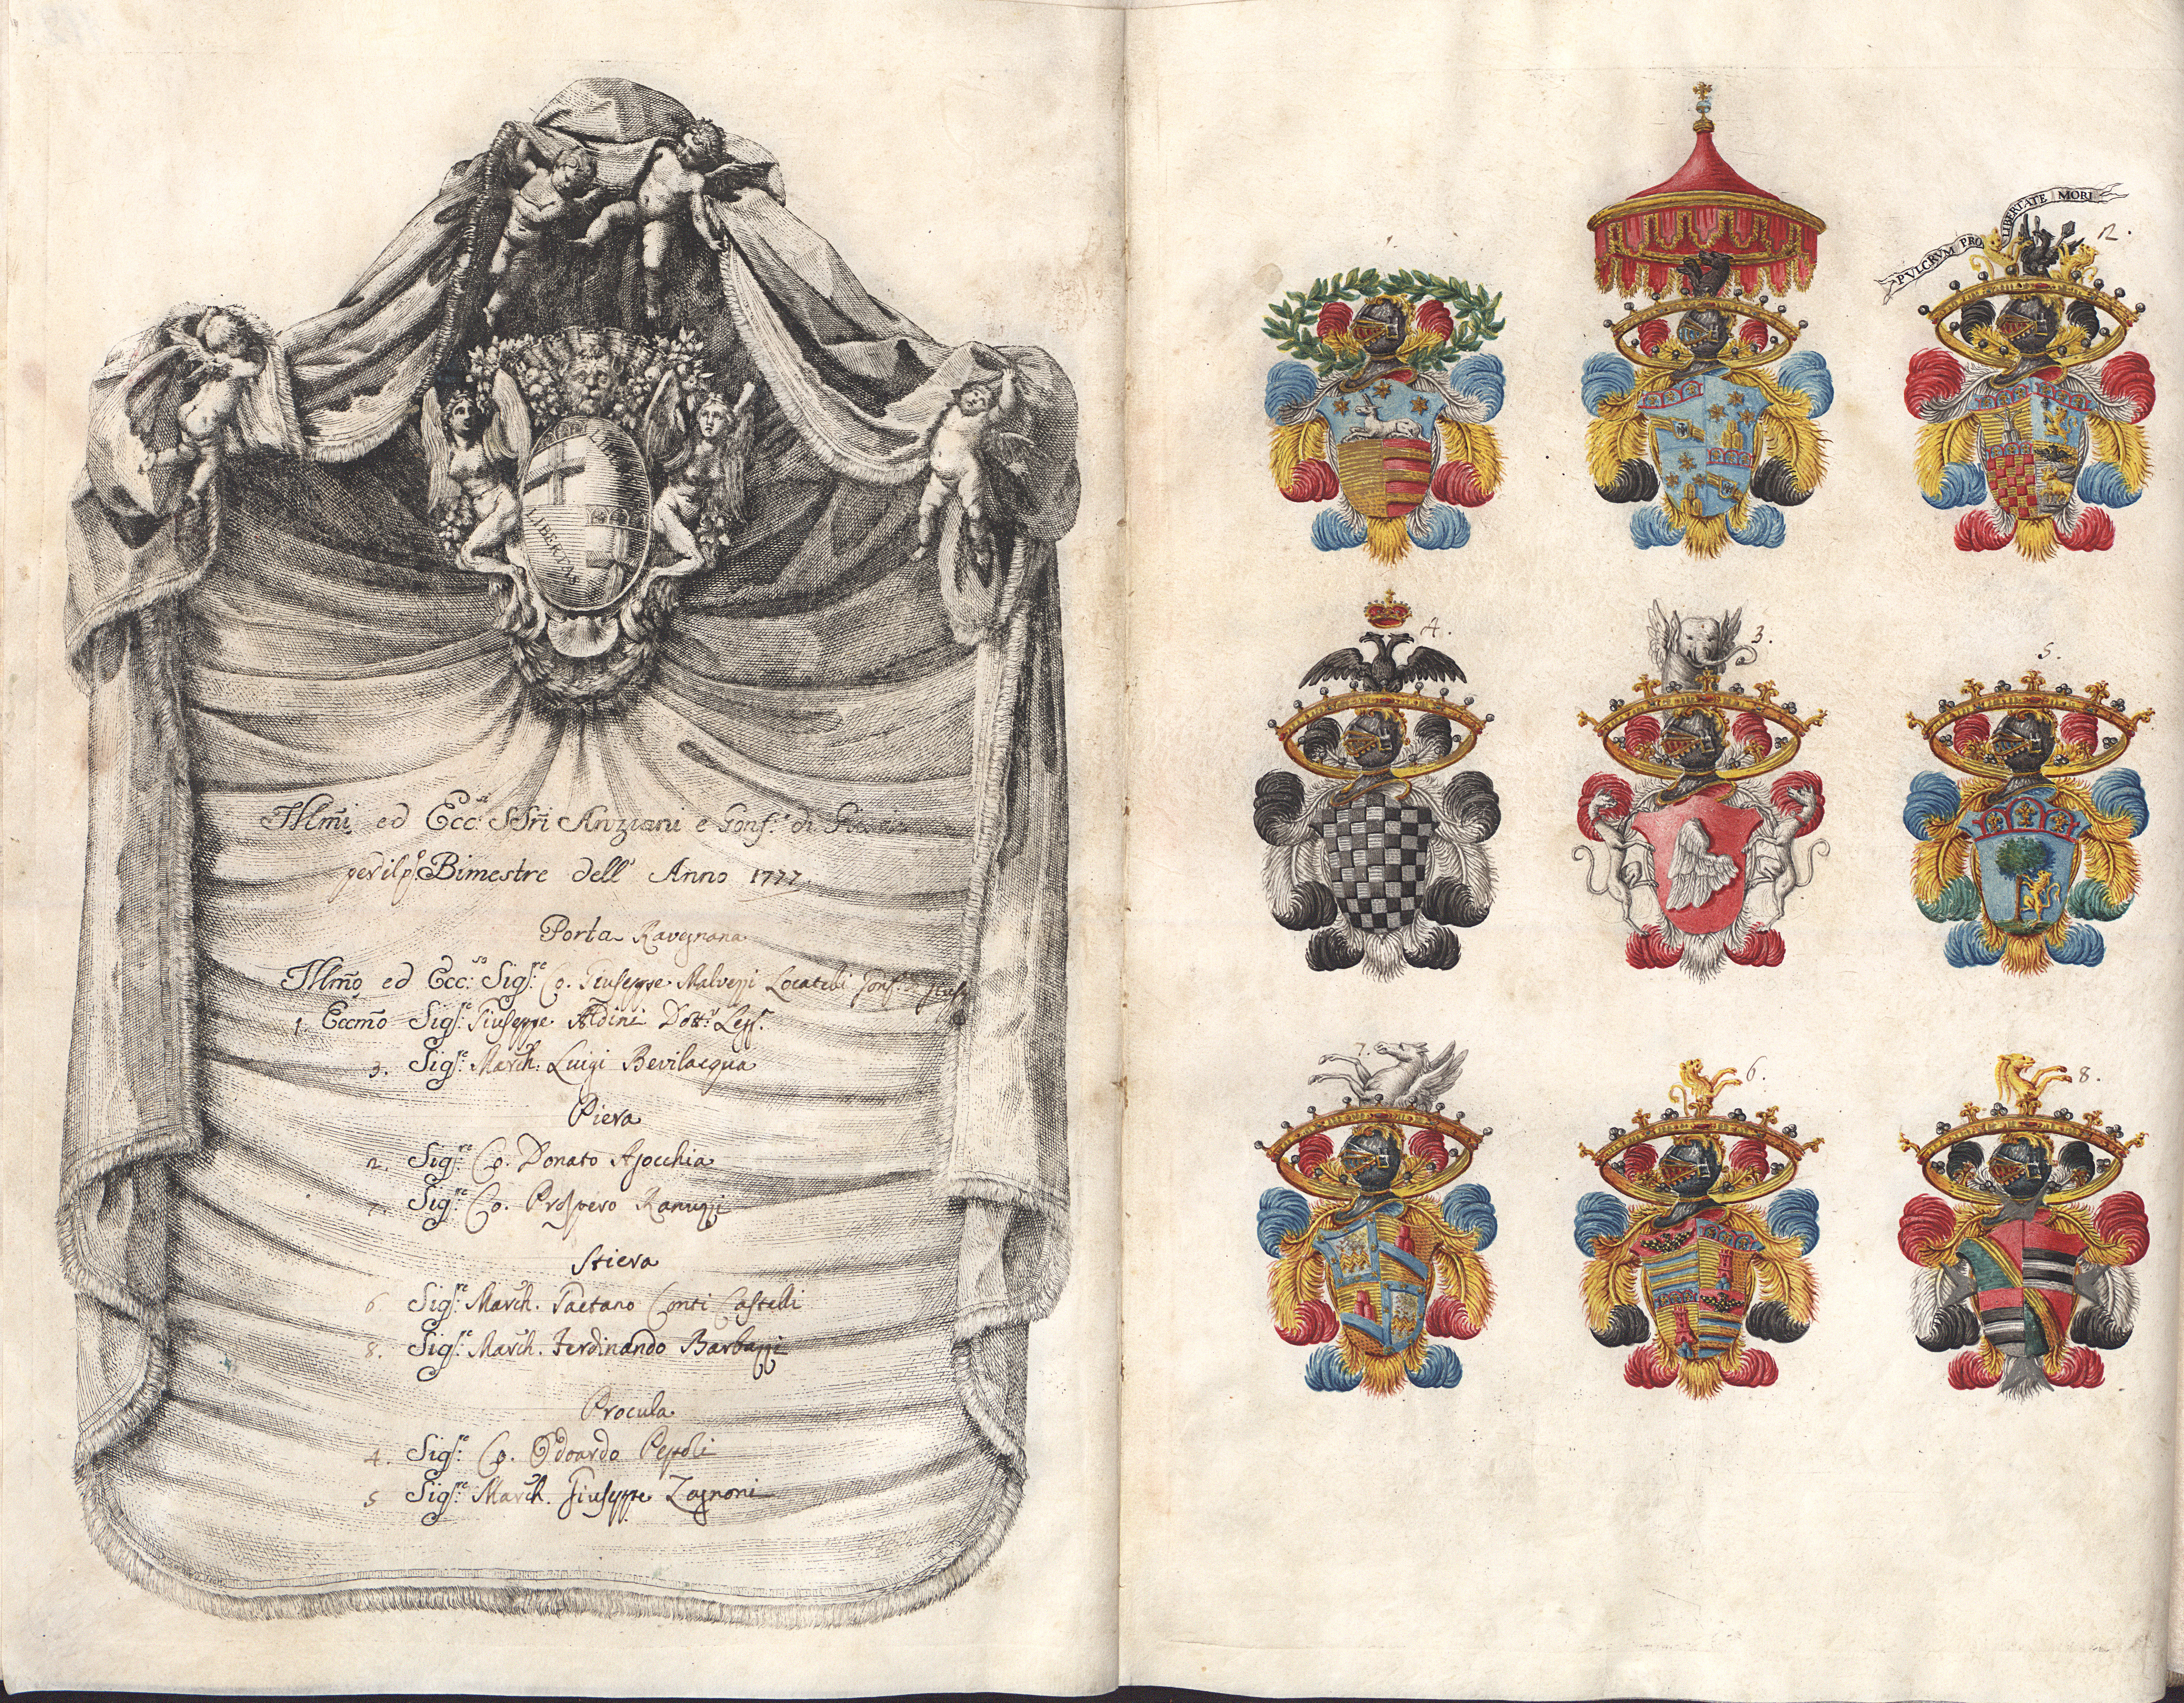 LIBERTAS
Illm̃i ed Ecc:si SSri Anziani e Gonf:e di
per il p:o Bimestre dell' Anno 1777
Porta Ravegnana
Illm̃o ed Ecc:so Sig:re Co. Giuseppe Malvezzi Locatelli Gonf:
1. Eccm̃o Sig:e Giuseppe Aldini Dott:r Legg:
3. Sig:re March: Luigi Bevilacqua
Piera
2. Sig:re Co. Donato Ajocchia
7. Sig:re Co. Prospero Ranuzzi
Stiera
6. Sig:re March. Gaetano Conti Castelli
8. Sig:re March. Ferdinando Barbazzi
Procula
4. Sig:e Co. Odoardo Pepoli
5 Sig:re March. Giuseppe Zagnoni
PVLCRVM PRO LIBERTATE MORI
2.
4.
3.
5.
7.
6.
8.